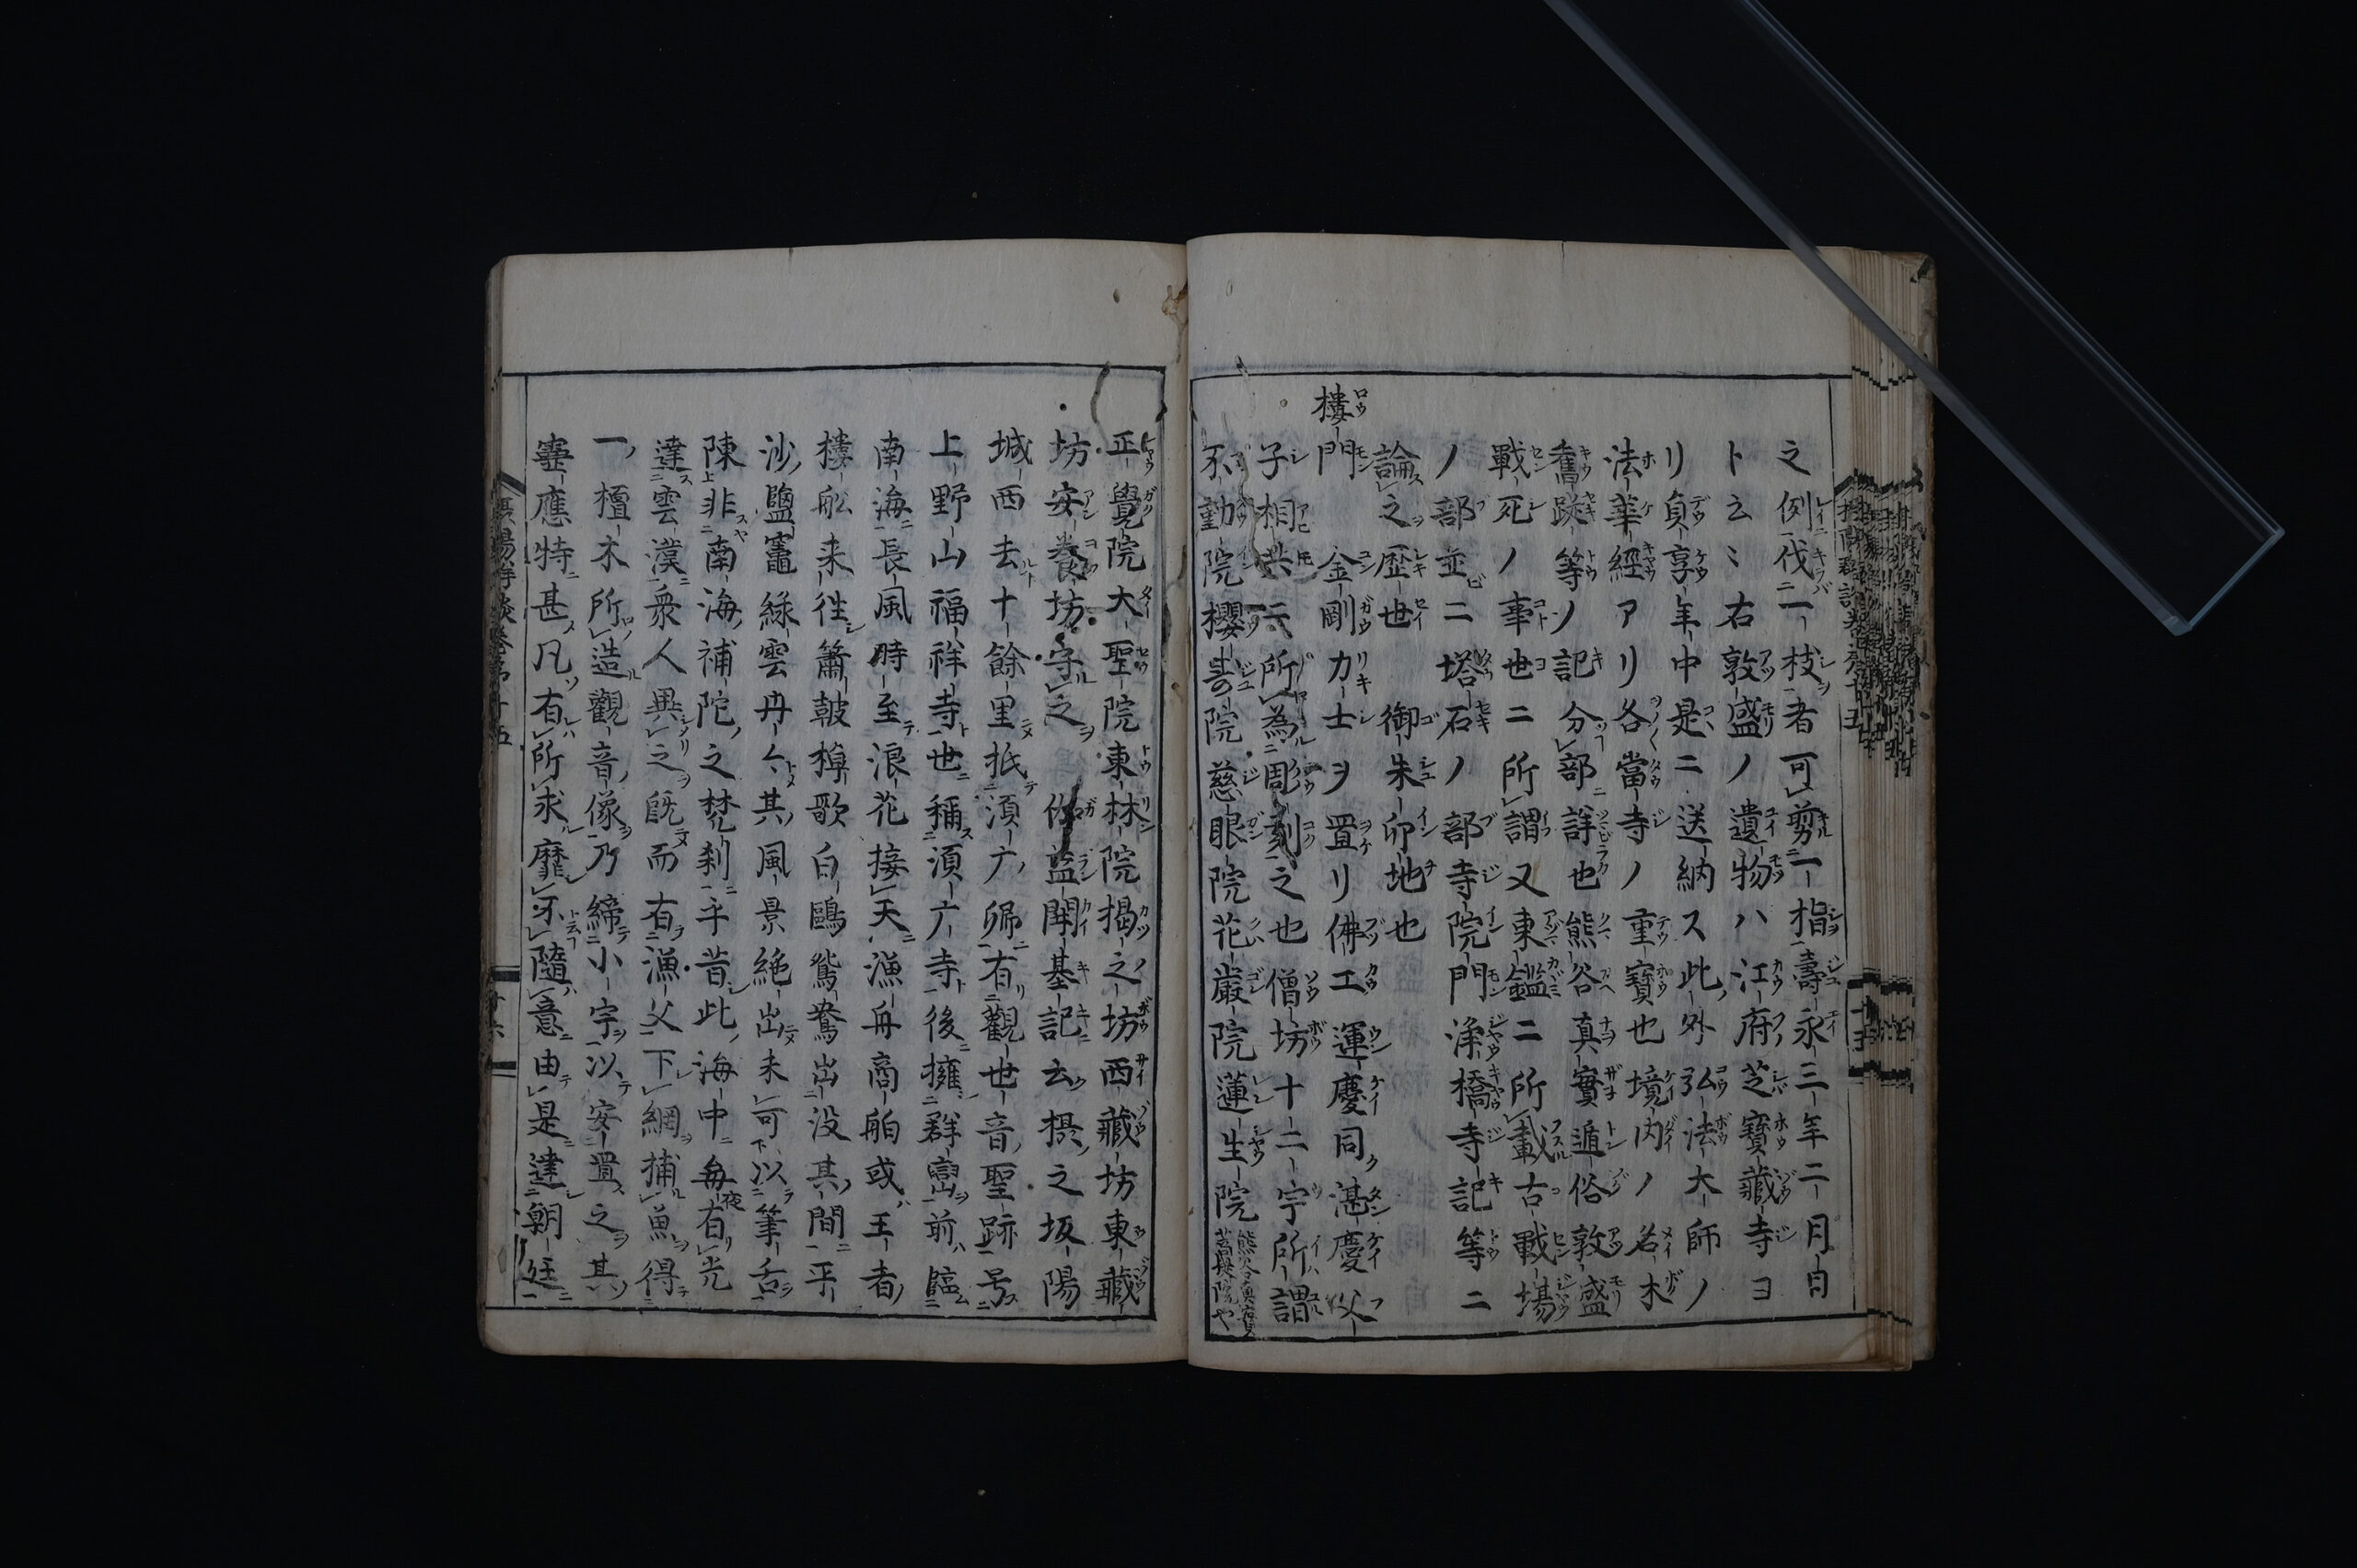 之例伐一枝者可剪一指壽永三年二月日
ト云〻右敦盛ノ遺物ハ江府芝寶藏寺ヨ
リ貞享年中是ニ送納ス此外弘法大師ノ
法華經アリ各當寺ノ重寶也境内ノ名木
舊跡等ノ記分部詳也熊谷真實遁俗敦盛
戰死ノ事世ニ所謂又東鑑ニ所載古戰場
ノ部並ニ塔石ノ部寺院門湊橋寺記等ニ
論之歴世御朱印地也
樓門金剛力士ヲ置リ佛工運慶同湛慶父
子相共云所為彫刻之也僧坊十二宇所謂
不動院櫻壽院慈眼院花嚴院蓮生院
正覺院大聖院東林院揭之坊西藏坊東藏
坊安養坊守之伽藍開基記云摂之坂陽
城西去十餘里抵須广歸有觀世音聖跡号
上野山福祥寺世稱須广寺後擁群巒前臨
南海長風時至浪花接天漁舟商舶或王者
樓船来往簫鼓棹歌白鷗鴛鴦出没其間平
沙鹽竈緑雲冉々其風景絶出未可以筆舌
陳非南海補陀之梵刹乎昔此海中毎夜有光
達雲漢衆人異之既而有漁父下網捕魚得
一檀木所造觀音像乃締小宇以安置之其
靈應特甚凡有所求靡不隨意由是達朝廷